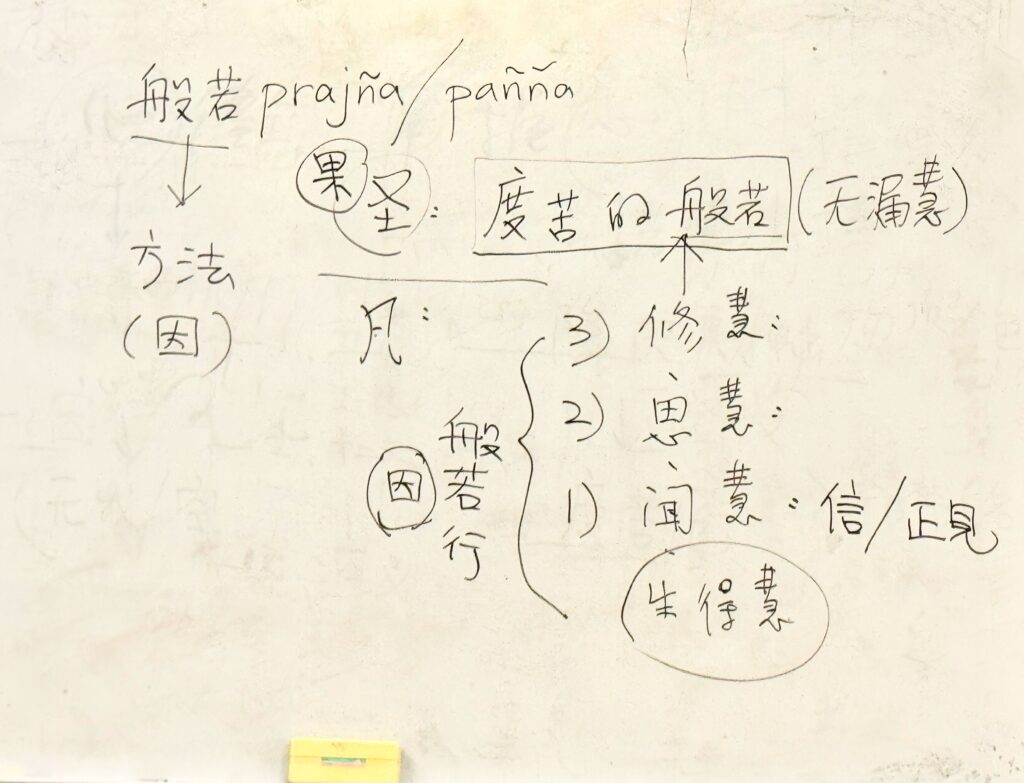 般若 prajña / paññā
果 圣: 度苦的般若 (无漏慧)
方法
(因)
凡:
3) 修慧:
2) 思慧:
因 般若行
1) 闻慧: 信/正见
生得慧